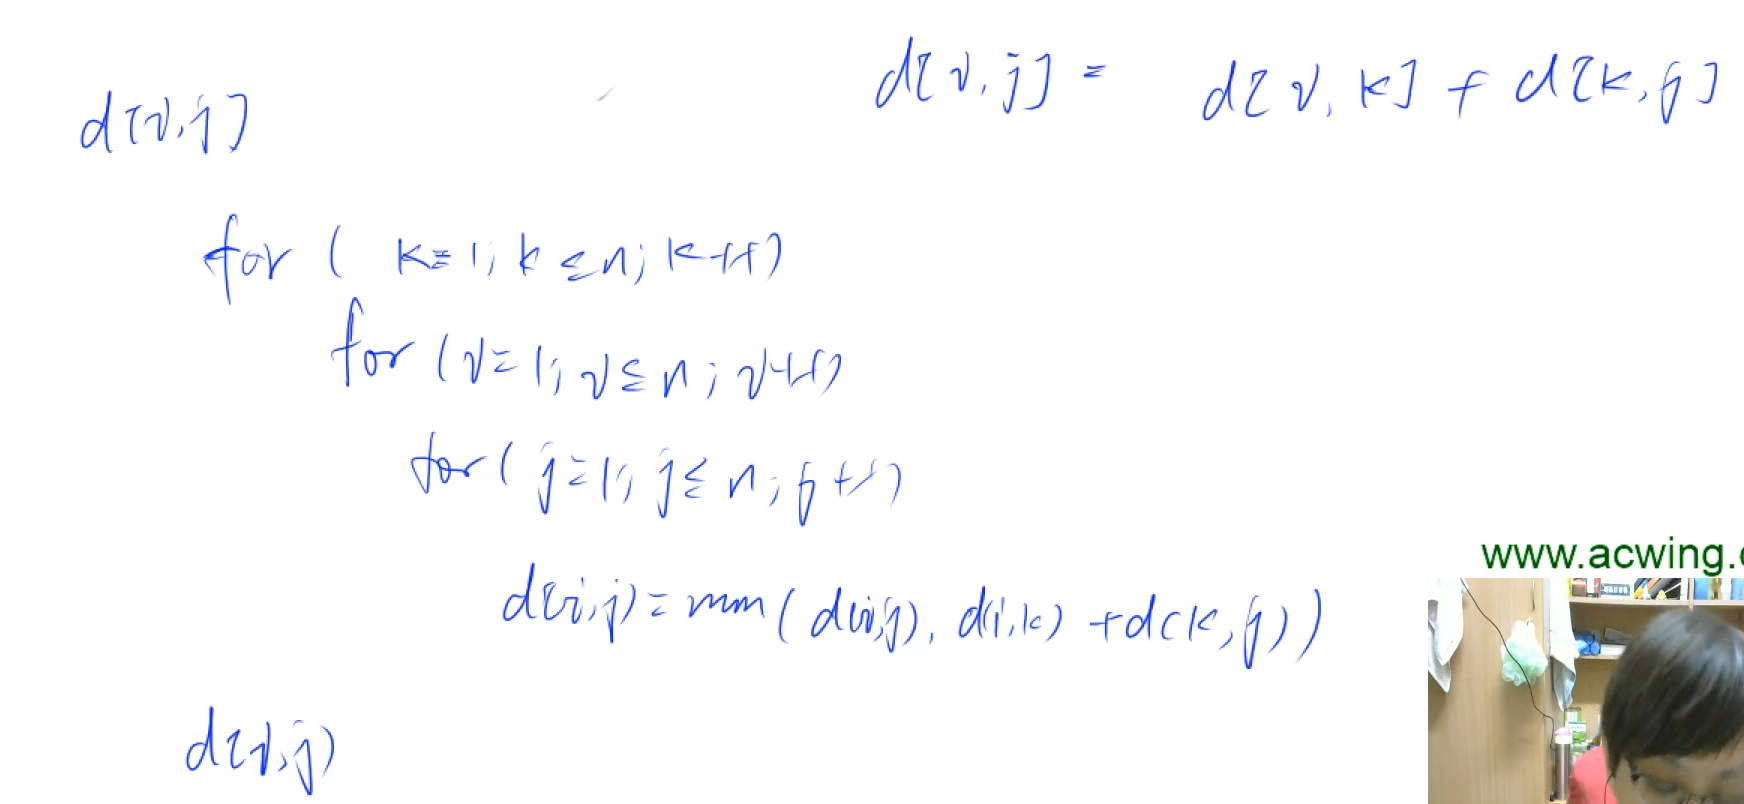 d[i,j]
d[i,j] = d[i,k] + d[k,j]
for ( k=1; k≤n; k++)
for (i=1; i≤n; i++)
for ( j=1; j≤n; j++)
d(i,j)=min( d(i,j), d(i,k) +d(k,j))
d[i,j)
www.acwing.